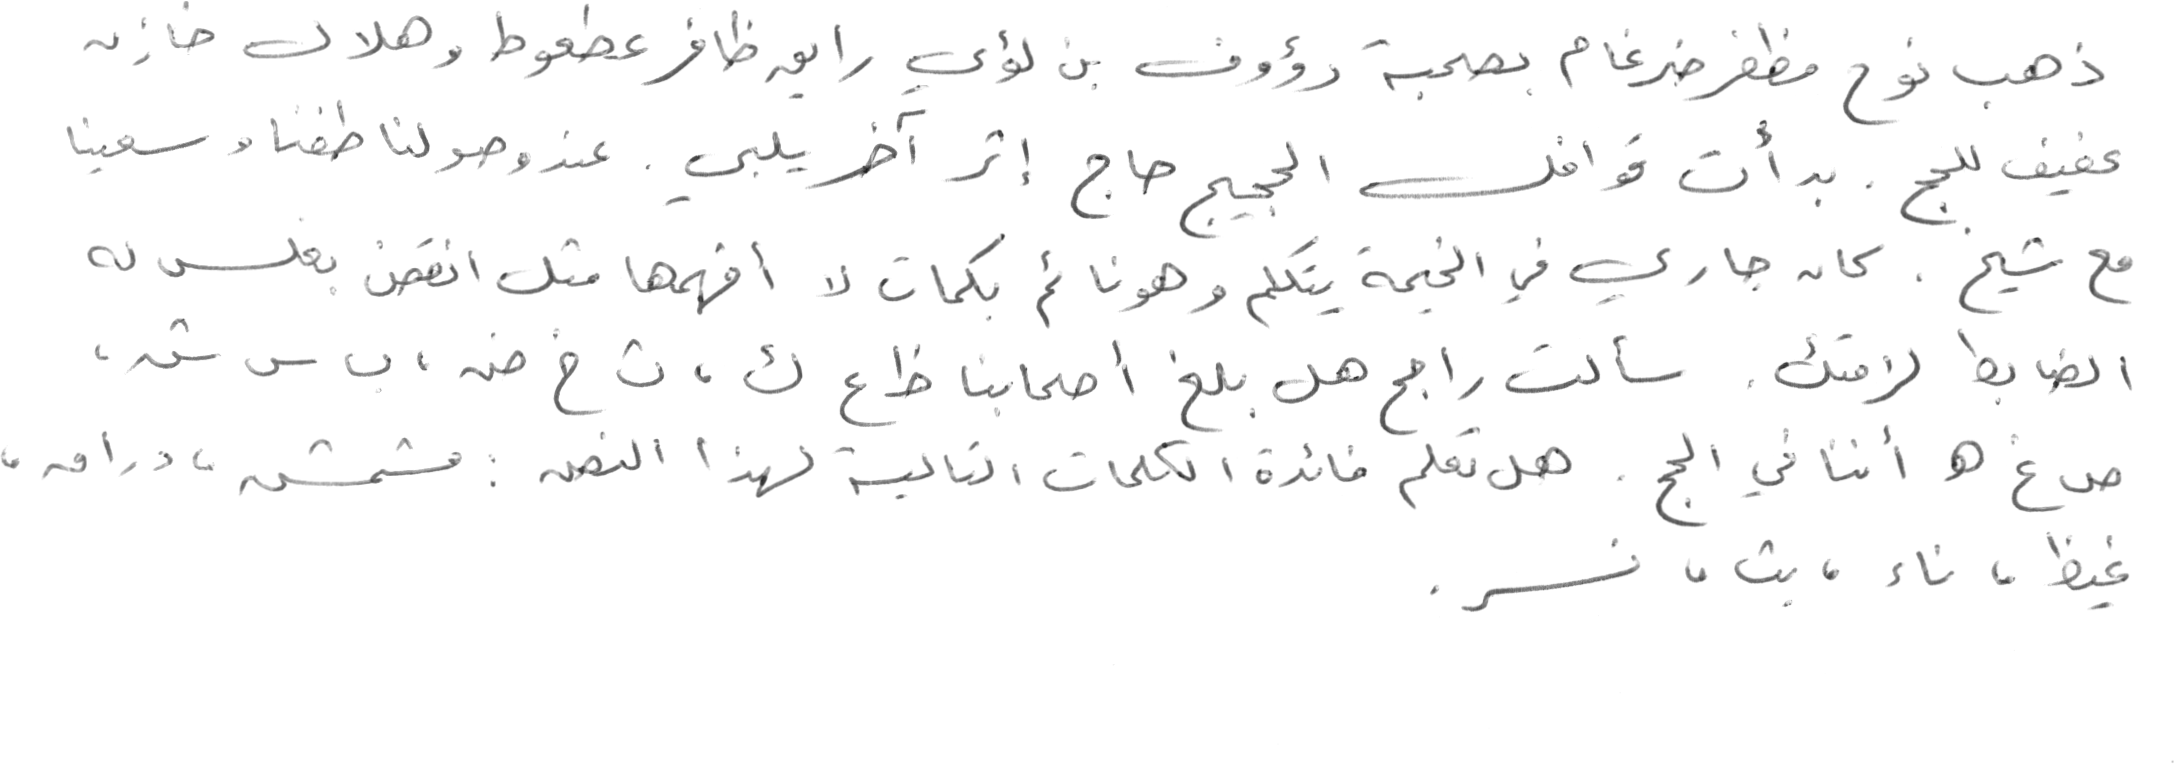 ذهب نوح مظفر ضرغام بصحبة رؤوف بن لؤي رايق ظافر عطعوط و هلال خازن
عفيف للحج . بدأت قوافل الحجيج حاج إثر آخر يلبي . عند وصولنا طفنا و سعينا
مع شيخ . كان جاري في الخيمة يتكلم و هو نائم بكلمات لا أفهمها مثل انقض بغلس له
الضابط لامتك . سألت راجح هل بلغ أصحابنا ظ ع ك ، ث خ ض ، ب س ش ،
ص غ ه أننا في الحج . هل تعلم فائدة الكلمات التالية لهذا النص : مشمش ، دراق ،
غيظ ، ناء ، بث ، نسر .